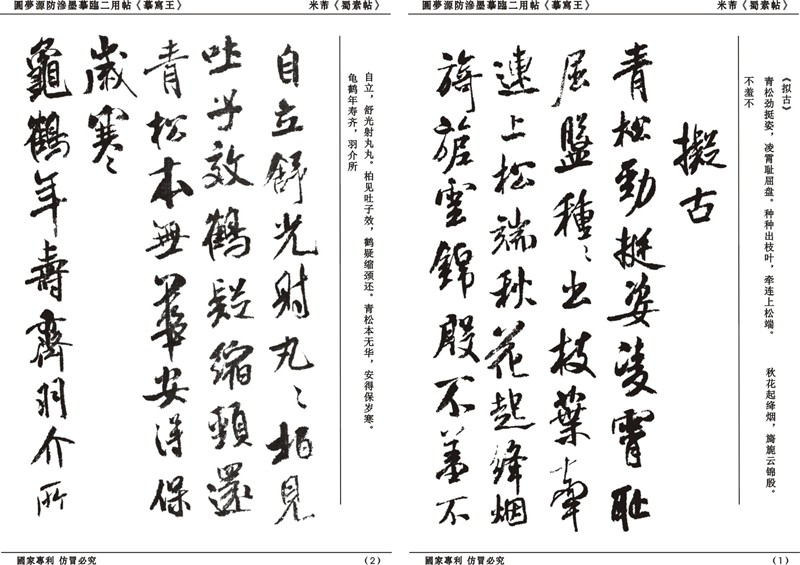 圓夢源防滲墨摹臨二用帖《摹寫王》 米芾《蜀素帖》
《拟古》
青松劲挺姿，凌霄耻屈盘。种种出枝叶，牵连上松端。 秋花起绛烟，旖旎云锦殷。
不羞不
擬古
青松勁挺姿凌霄耻
屈盤種〻出枝葉牽
連上松端秋花起絳烟
旖旎雲錦殷不羞不
國家專利 仿冒必究 （1）
圓夢源防滲墨摹臨二用帖《摹寫王》 米芾《蜀素帖》
自立，舒光射丸丸。柏见吐子效，鹤疑缩颈还。青松本无华，安得保岁寒。
龟鹤年寿齐，羽介所
自立舒光射丸〻柏見
吐子效鶴疑縮頸還
青松本無華安得保
歲寒〻
龜鶴年壽齊羽介所
國家專利 仿冒必究 （2）